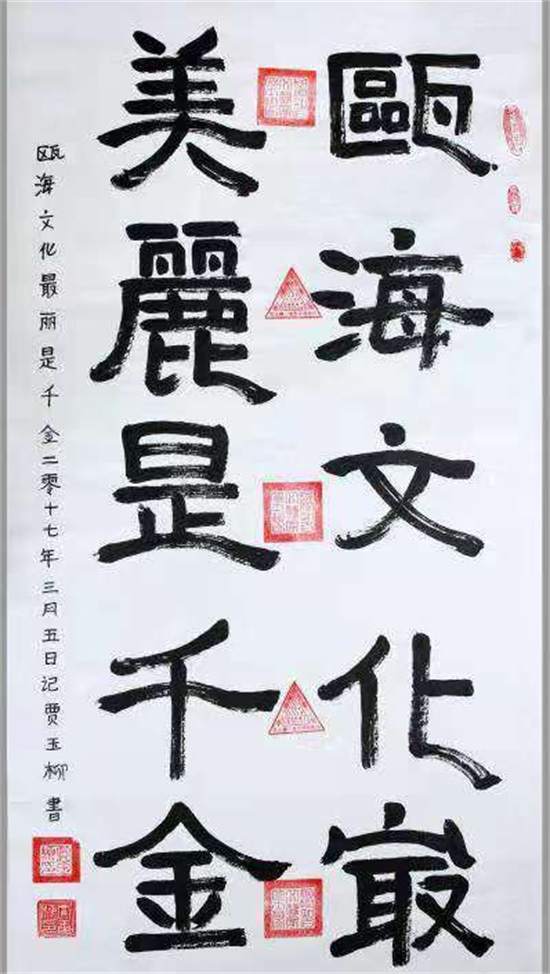 甌海文化最
美麗是千金
瓯海文化最丽是千金二零十七年三月五日记贾玉柳書